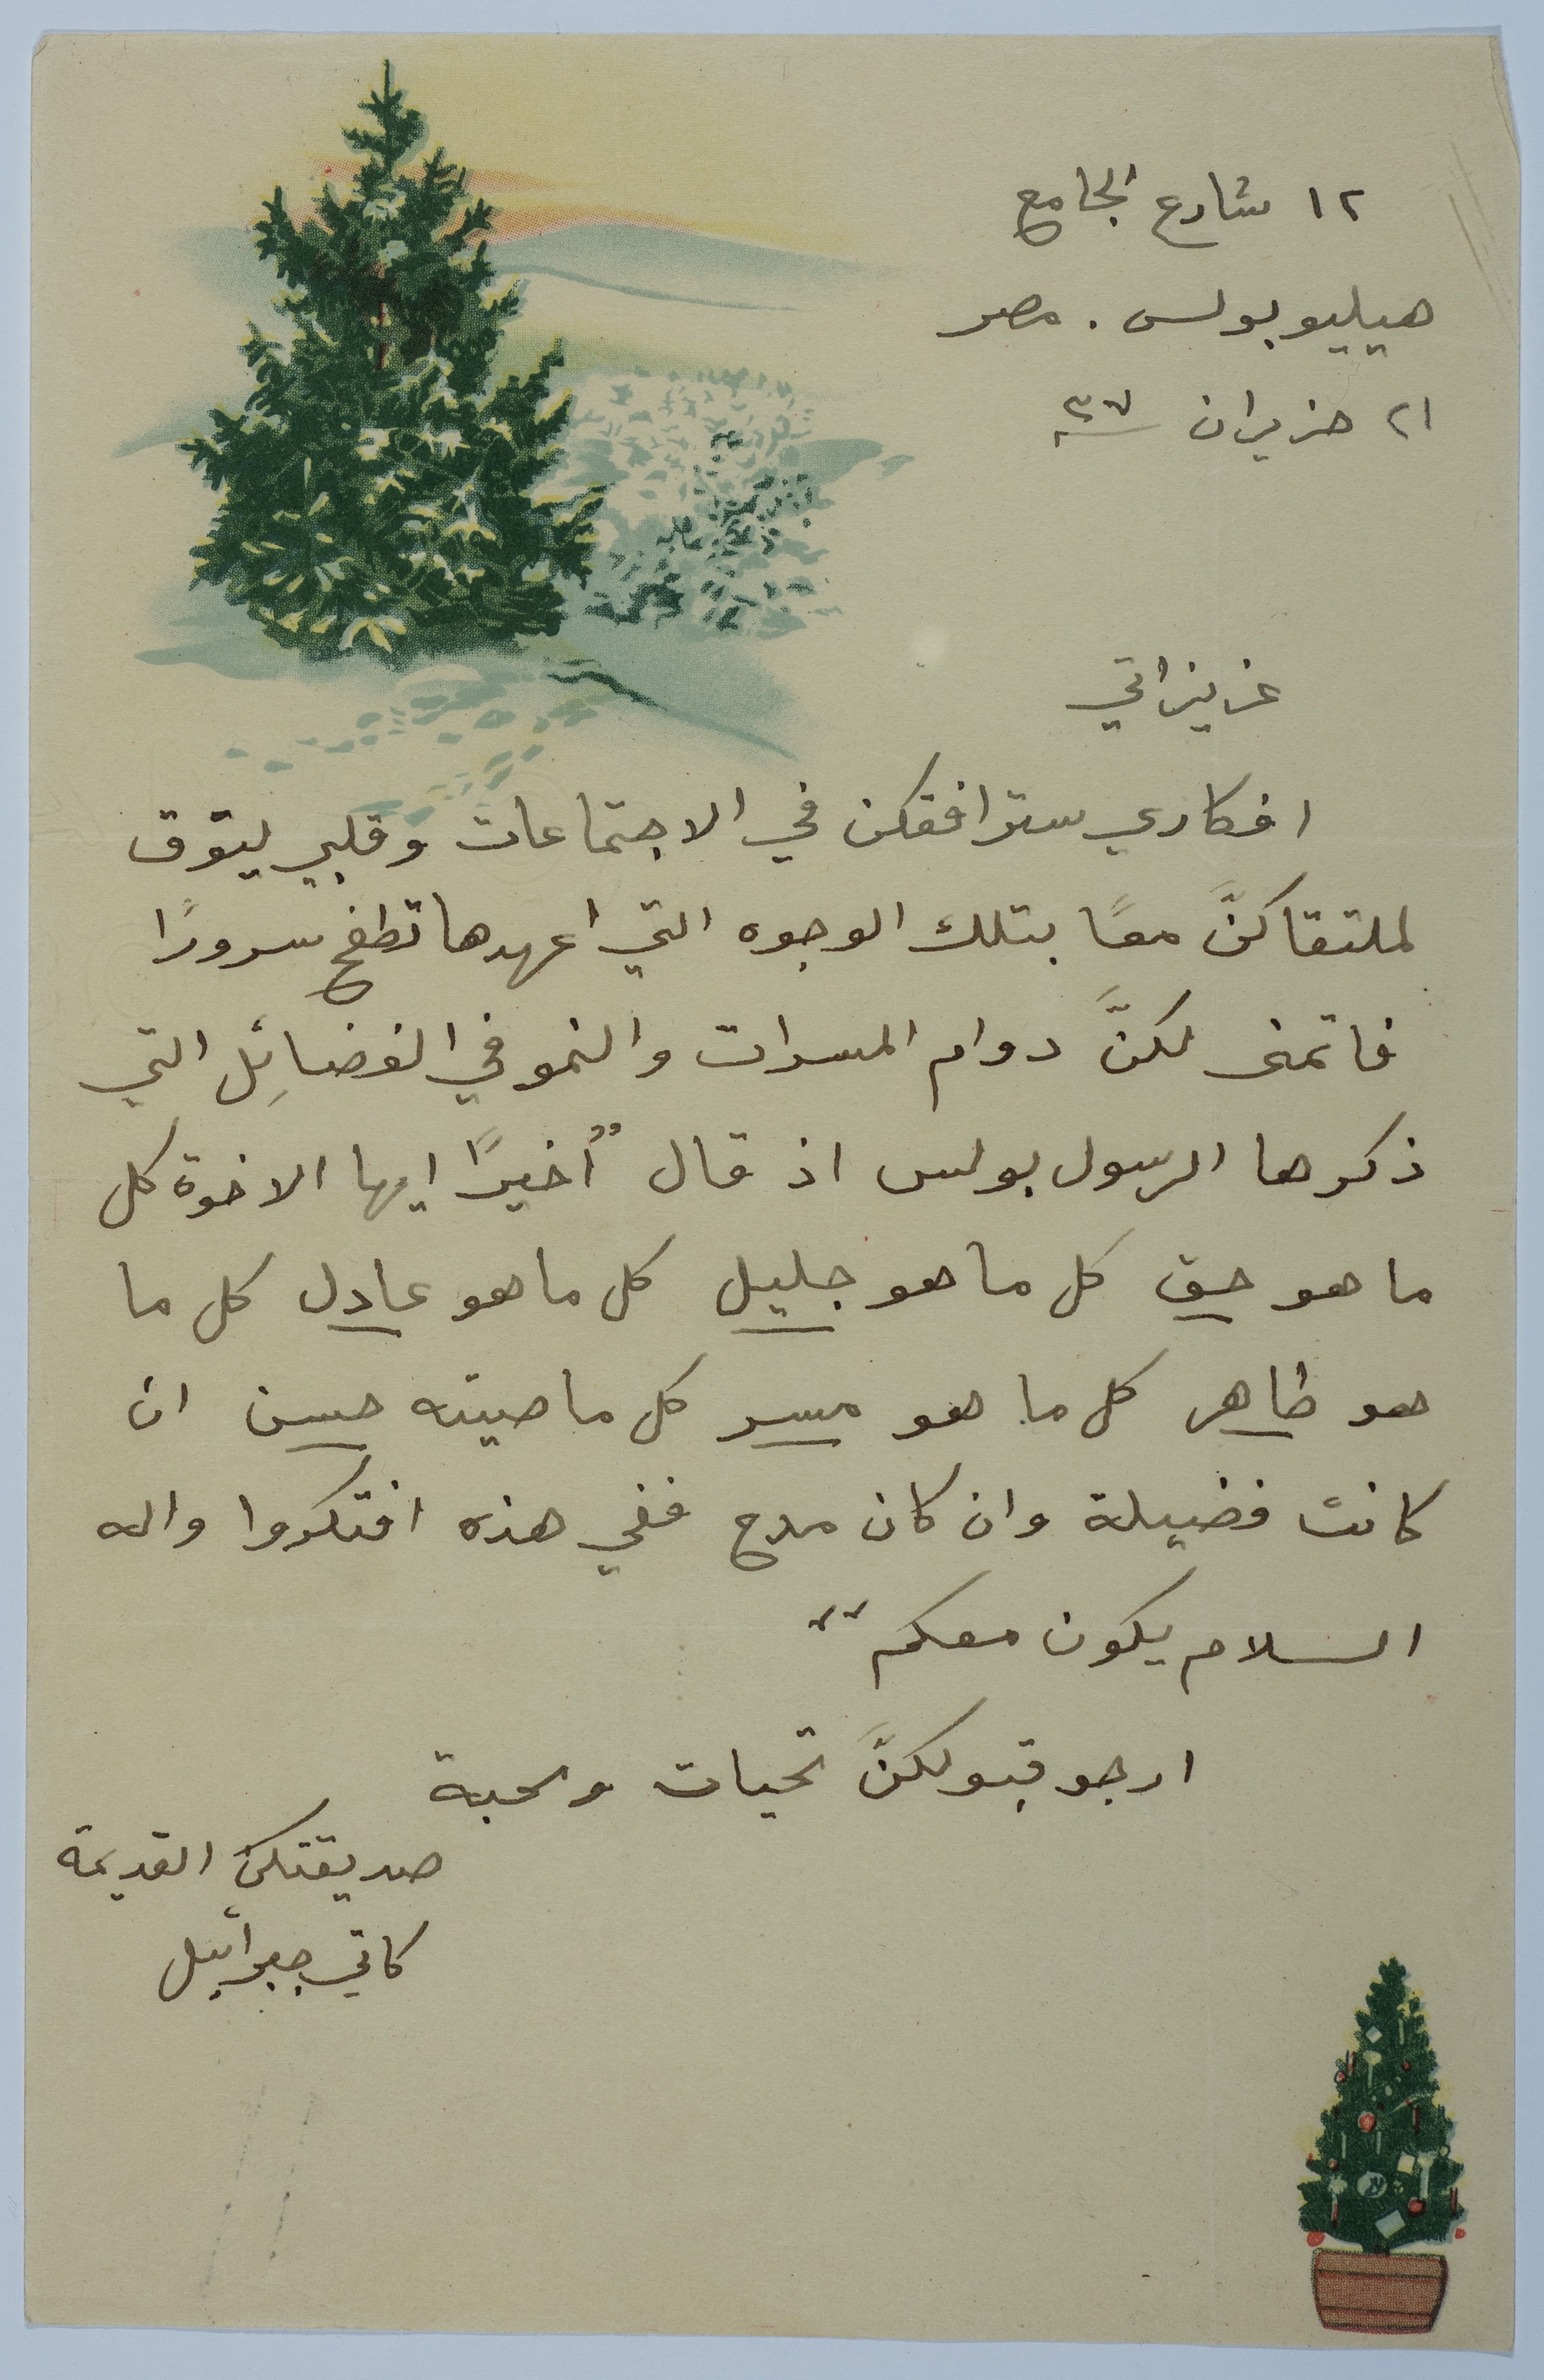 ١٢ شارع الجامع
هيليوبولس . مصر
٢١ حزيران سنة ٣٧
عزيزاتي
افكاري سترافقكن في الاجتماعات وقلبي يتوق
لملتقاكنَّ معًا بتلك الوجوه التي اعهدها تطفح سرورًا
فاتمنى لكنَّ دوام المسرات والنمو في الفضائِل التي
ذكرها الرسول بولس اذ قال "أخيرًا ايها الاخوة كل
ما هو حق كل ما هو جليل كل ما هو عادل كل ما
هو طاهر كل ما هو مسر كل ما صيته حسن ان
كانت فضيلة وان كان مدح ففي هذه افتكروا واله
السلام يكون معكم"
ارجو قبولكنَّ تحيات ومحبة
صديقتكن القديمة
كاتي جبرائيل